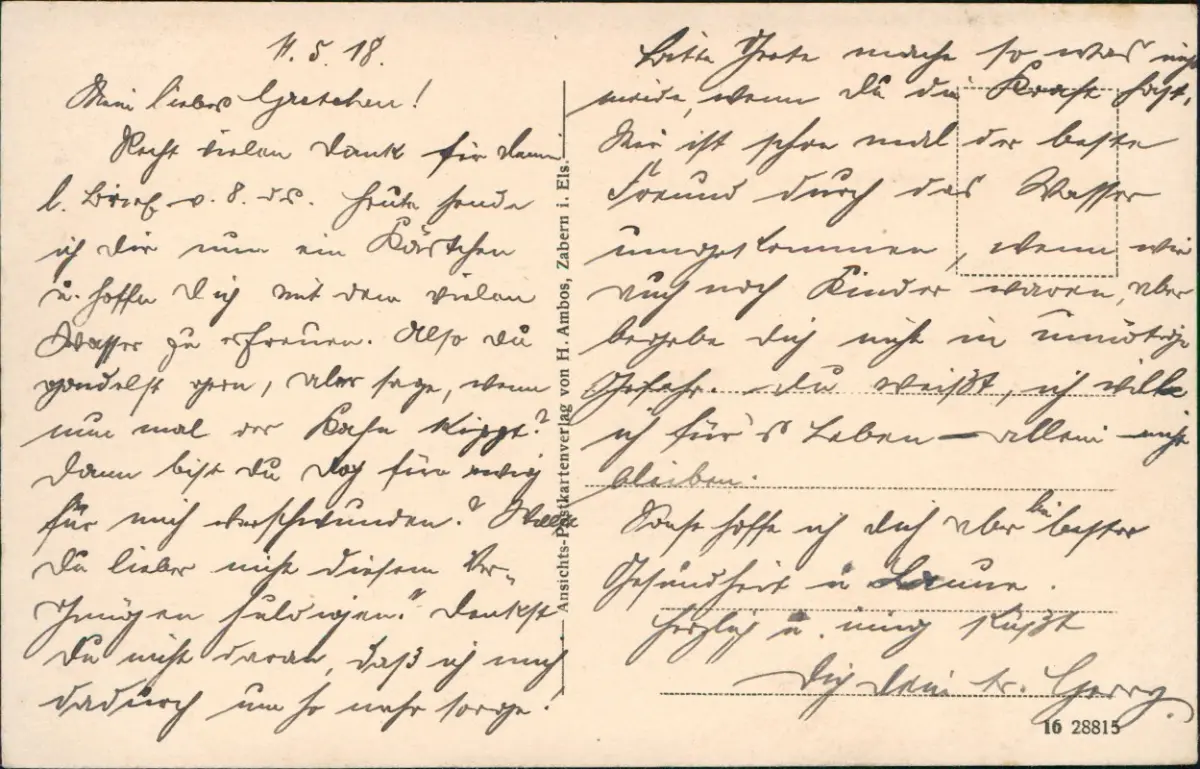 11. 5. 18.
Mein liebes Gretchen!
Recht vielen Dank für deinen
l. Brief v. 8. ds. Heute sende
ich dir nun ein Kärtchen
u. hoffe Dich mit dem vielen
Wasser zu erfreuen. Also du
gondelst gern, aber sage, wenn
nun mal der Kahn kippt?
Dann bist du doch für ewig
für mich verschwunden? Willst
Du lieber nicht diesem Ver-
gnügen huldigen? Denkst
Du nicht daran, daß ich mich
dadurch um so mehr sorge!
Ansichts-Postkartenverlag von H. Ambos, Zabern i. Els.
Bitte Grete mache so etwas nicht
meide, wenn du die Kraft hast,
Mir ist schon mal der beste
Freund durch das Wasser
umgekommen, wenn wir
auch noch Kinder waren, aber
begebe dich nicht in unnötige
Gefahr. Du weißt, ich will
ich für's Leben – allein nicht
bleiben.
Sonst hoffe ich dich aber bei bester
Gesundheit u Laune.
Herzlich u. innig küßt
Dich dein tr. Georg.
16 28815